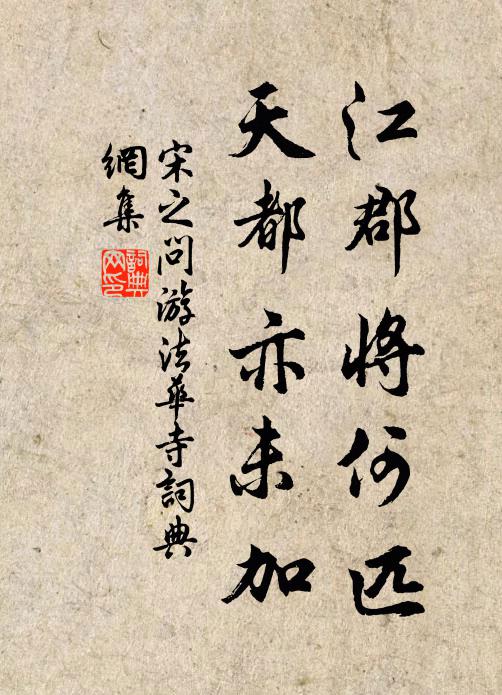 江郡將何匹
天都亦未加
宋之问游法華寺詞典
網集
詞典
网印